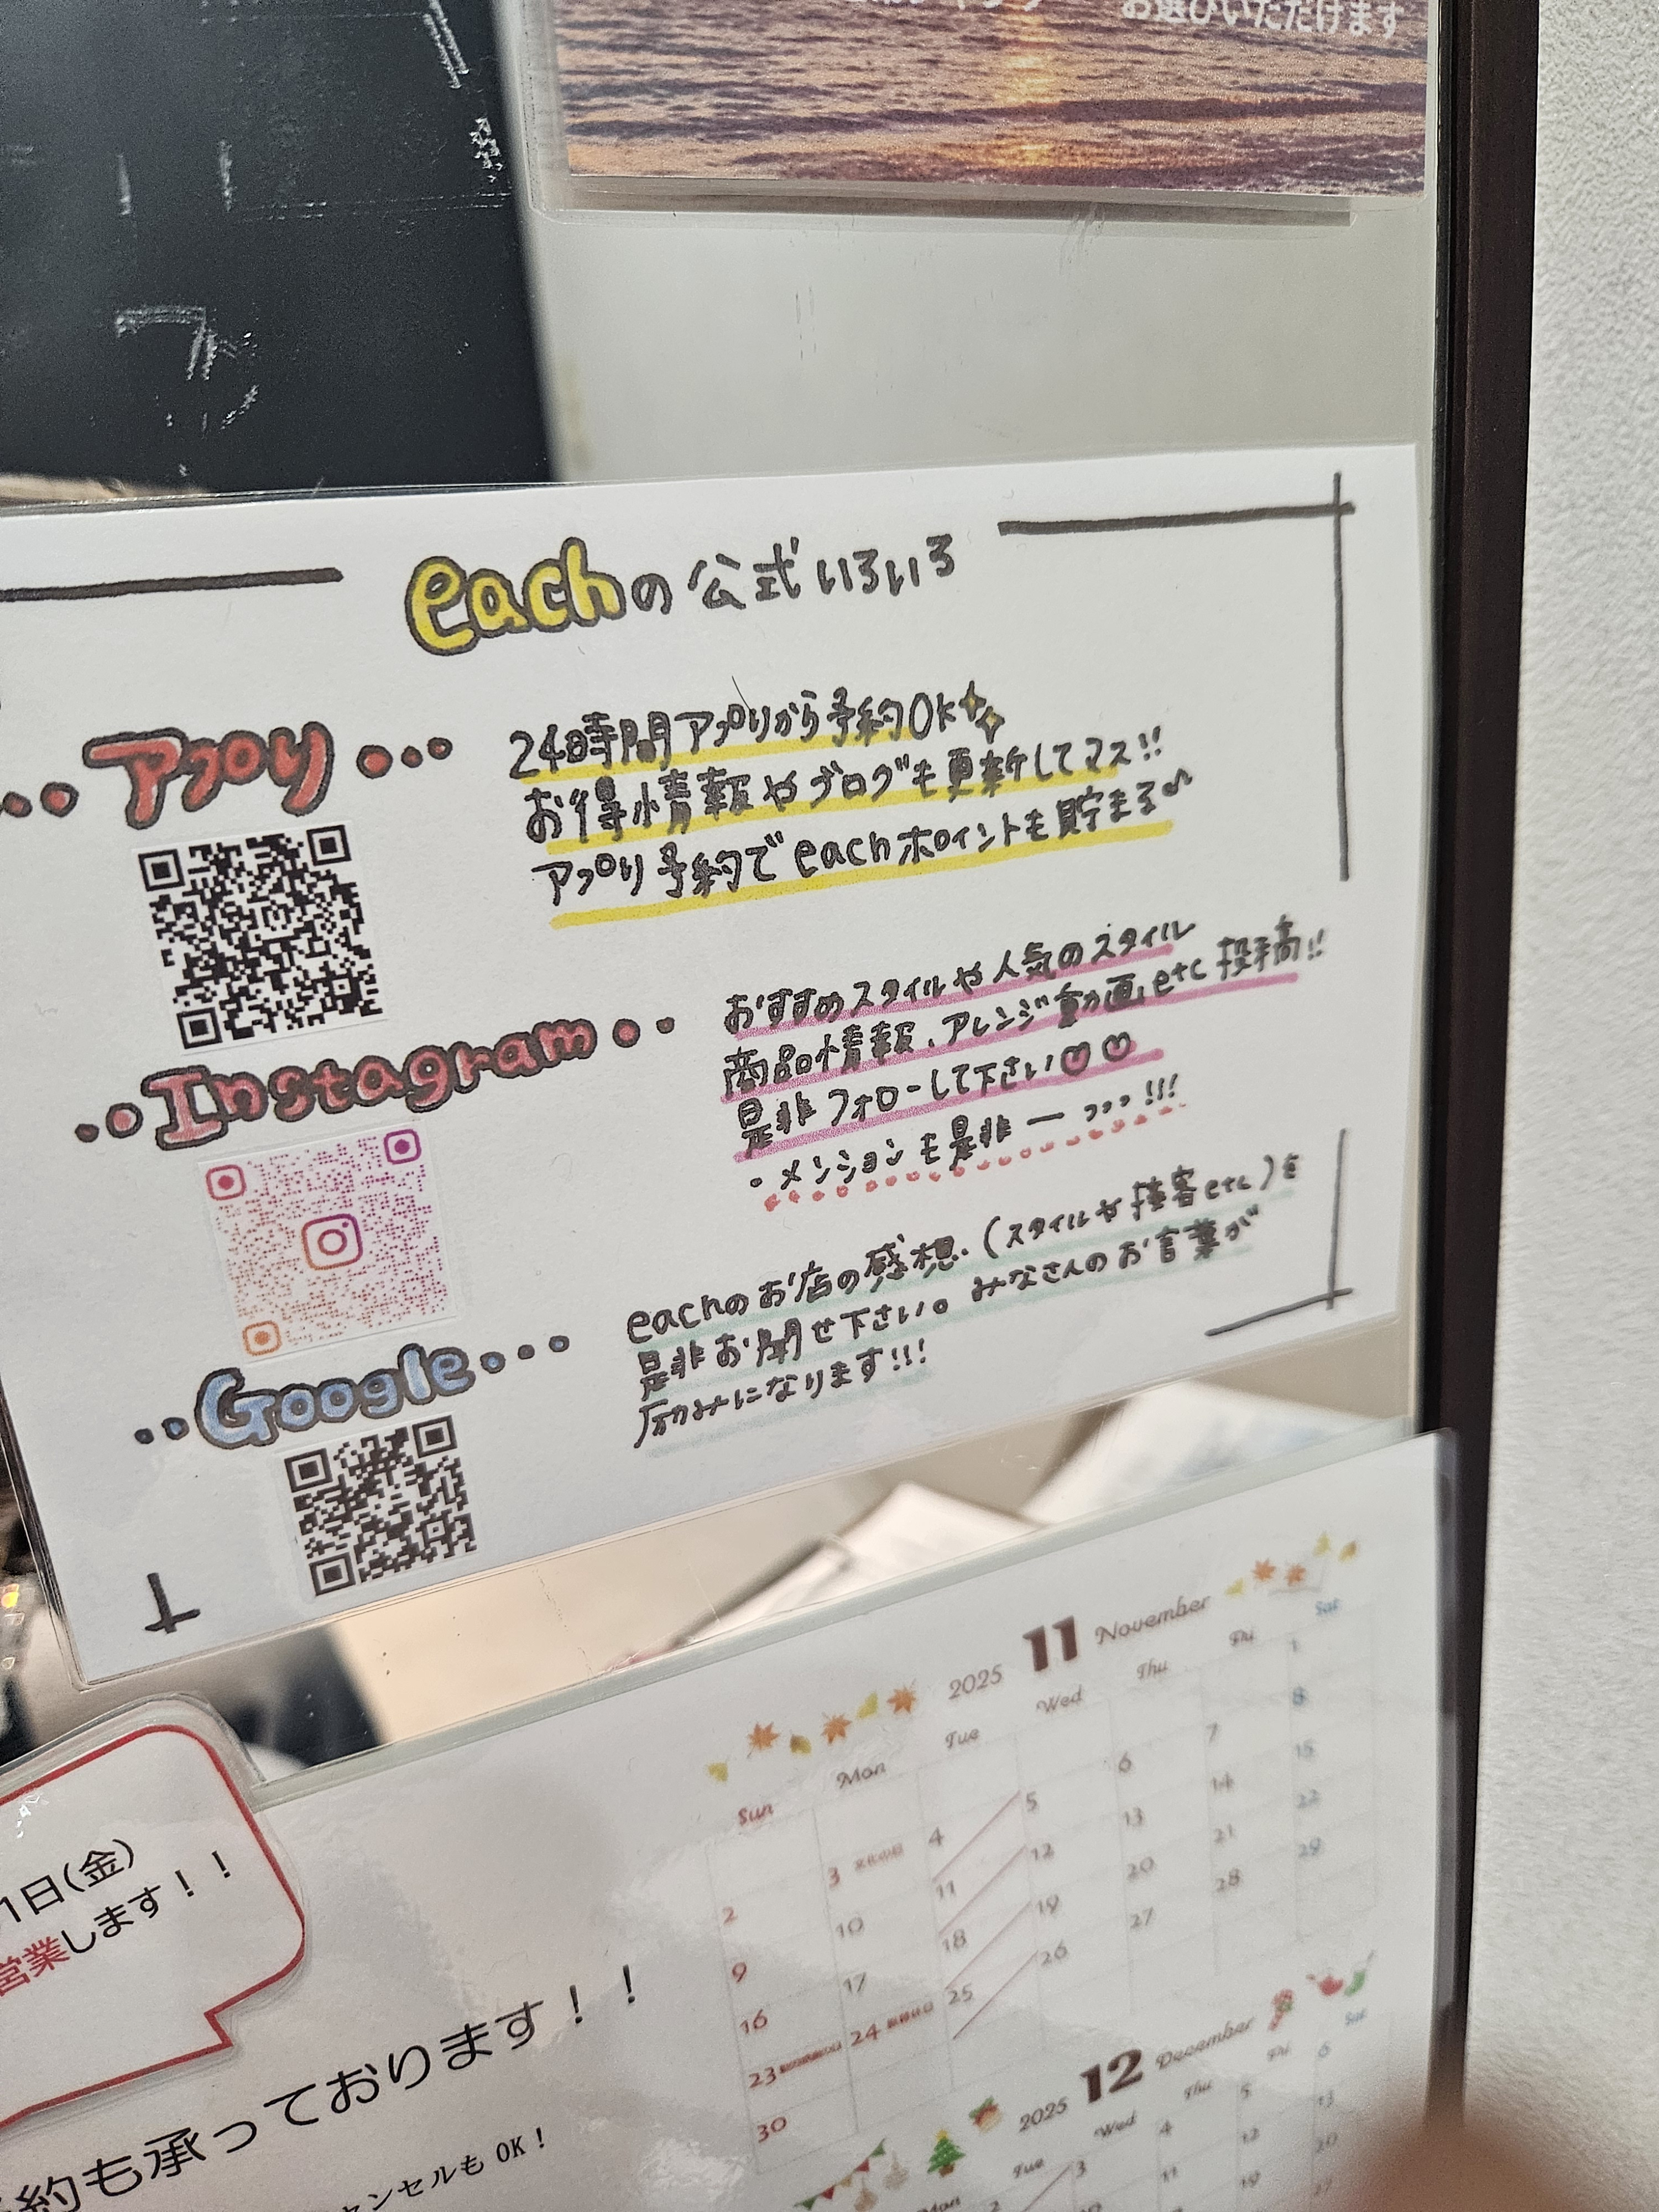 お選びいただけます
eachの公式いろいろ
アプリ
24時間アプリから予約OK
お得情報やブログも更新してマス!!
アプリ予約でeachポイントも貯まる♪
Instagram
おすすめスタイルや人気のスタイル
商品情報、アレンジ動画etc投稿!!
是非フォローして下さい♡♡
・メンションも是非ー!!!
Google
eachのお店の感想(スタイルや接客etc)を
是非お聞せ下さい。みなさんのお言葉が
励みになります!!!
1日(金)
営業します！！
約も承っております！！
ャンセルも OK！
2025 11 November
Sun Mon Tue Wed Thu Fri Sat
1
2 3 4 5 6 7 8
9 10 11 12 13 14 15
16 17 18 19 20 21 22
23 24 25 26 27 28 29
30
2025 12 December
Mon Tue Wed Thu Fri Sat
2 3 4 5 6
11 12 13
19 20